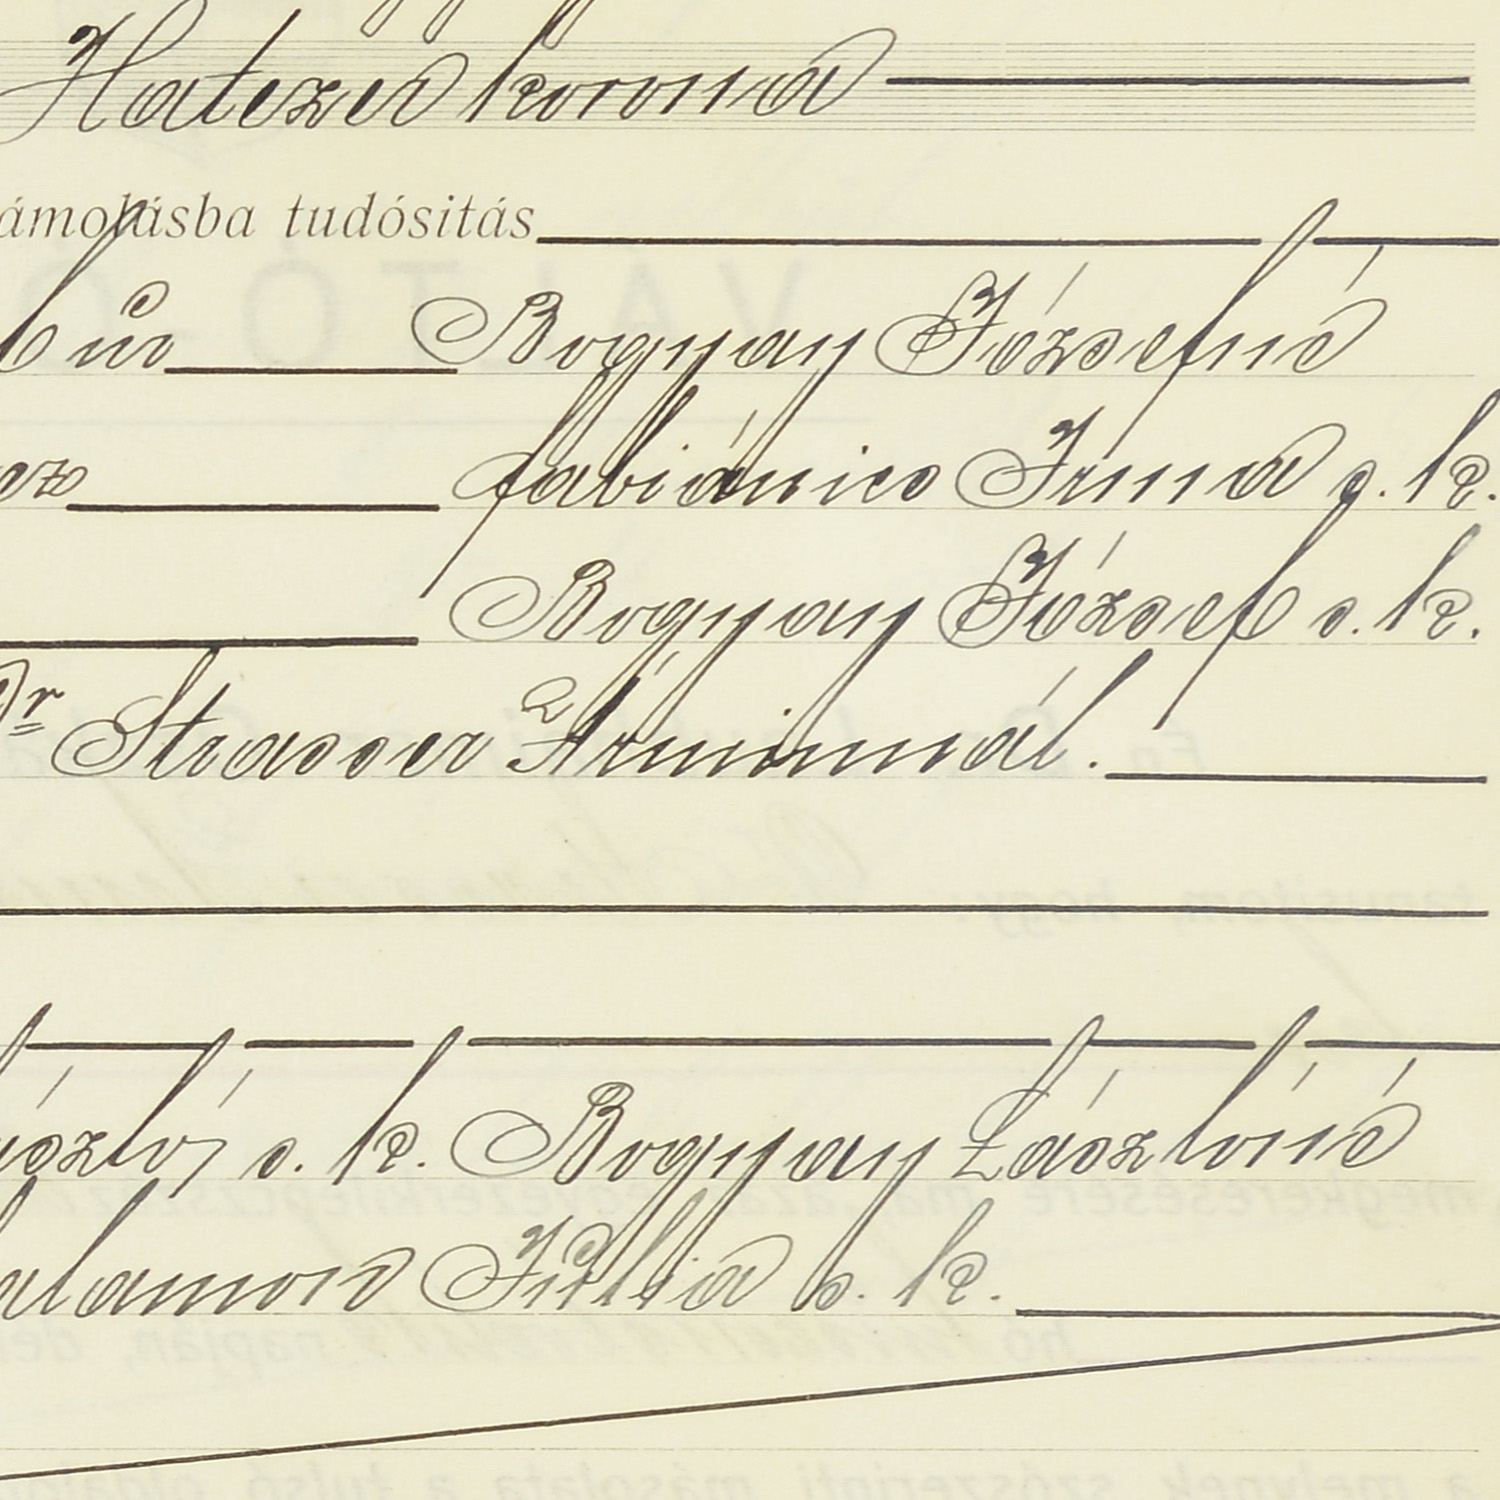 Hatezer korona
ámolásba tudósitás
úr Bogyay Józsefné
ez fabiánics Irma s. k.
Bogyay József s. k.
Dr Strasser Árminnál.
ászló, s. k. Bogyay Lászlóné
alamon Júlia s. k.